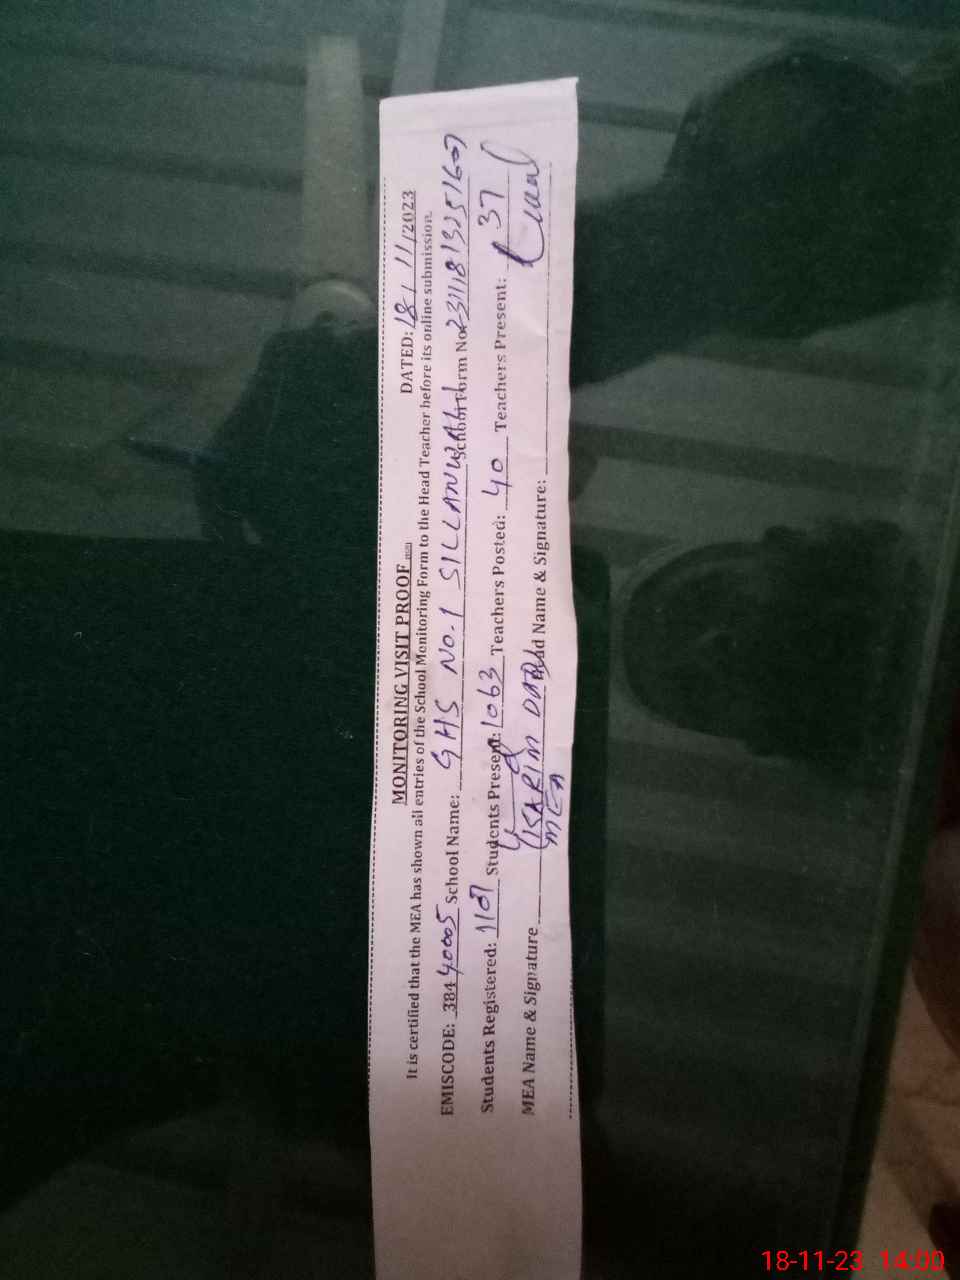 MONITORING VISIT PROOF DATED: 18/11/2023
It is certified that the MEA has shown all entries of the School Monitoring Form to the Head Teacher before its online submission.
EMISCODE: 38440005 School Name: GHS NO.1 SILLANWALI School Form No.
Students Registered: 1107 Students Present: 1063 Teachers Posted: 40 Teachers Present: 37
MEA Name & Signature Head Name & Signature:
MEA
18-11-23 14:00